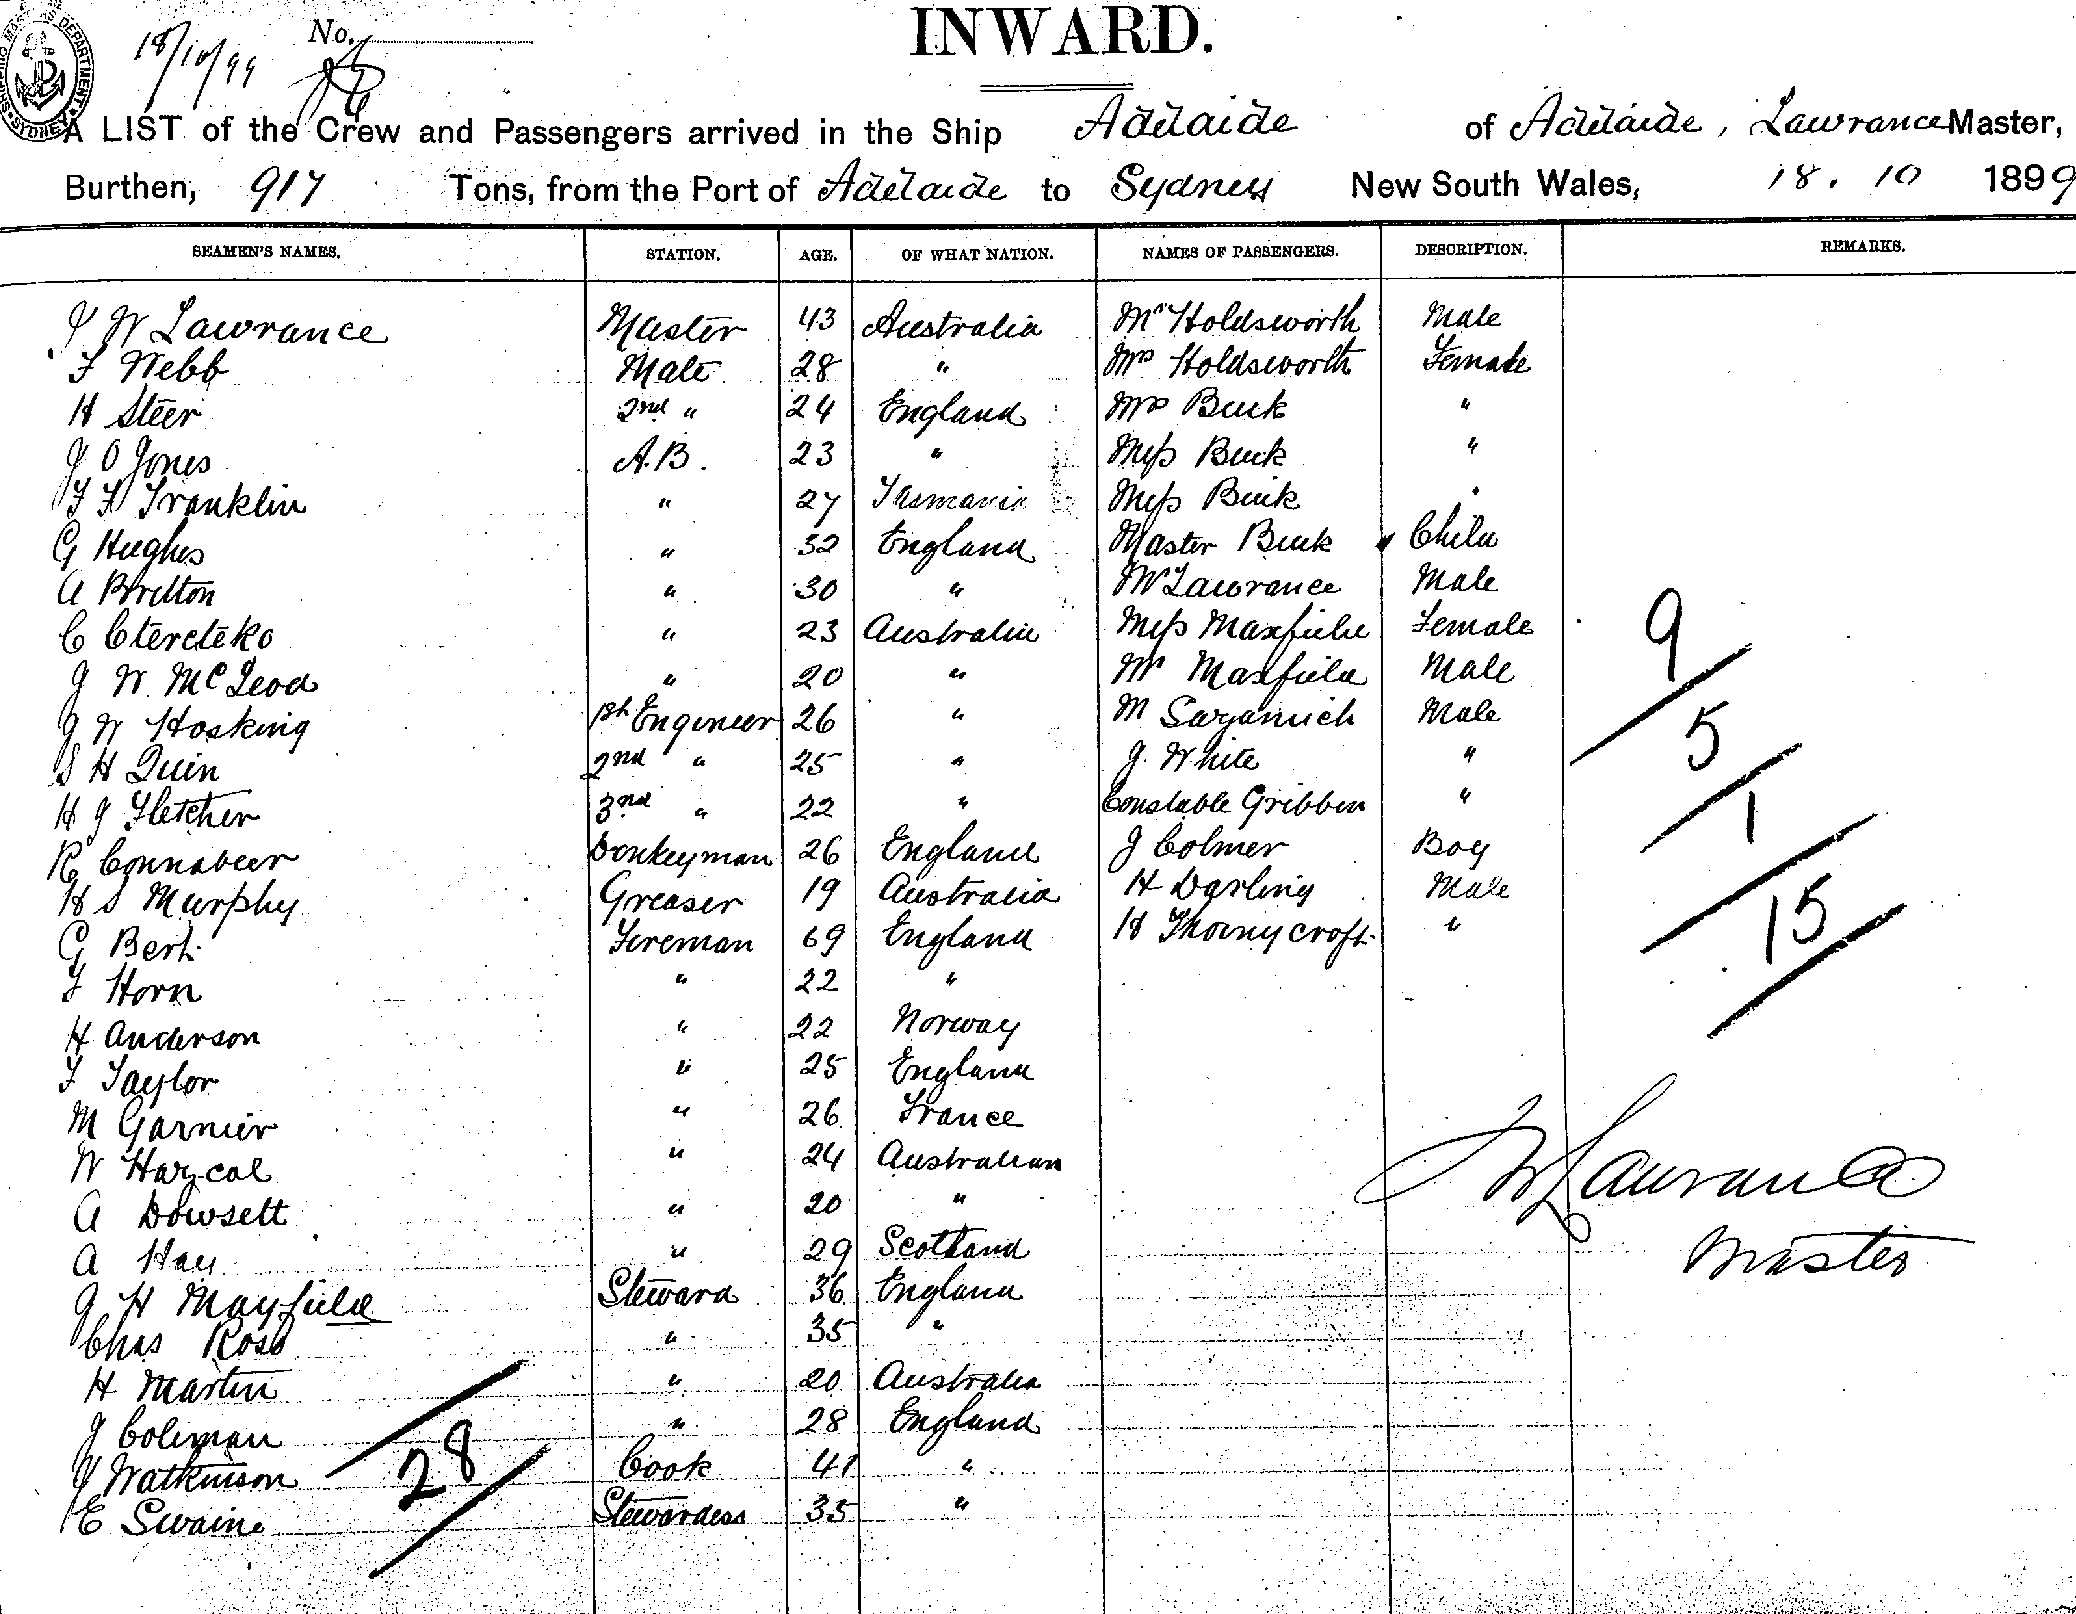 SHIPPING MASTER'S DEPARTMENT SYDNEY
18/10/99 No.
INWARD.
A LIST of the Crew and Passengers arrived in the Ship Adelaide of Adelaide, Lawrance Master,
Burthen, 917 Tons, from the Port of Adelaide to Sydney New South Wales, 18. 10 1899
SEAMEN'S NAMES. STATION. AGE. OF WHAT NATION. NAMES OF PASSENGERS. DESCRIPTION. REMARKS.
J W Lawrance Master 43 Australia Mr Holdsworth Male
F Webb Mate 28 " Mrs Holdsworth Female
H Steer 2nd " 24 England Mrs Buik "
J O Jones A.B. 23 " Miss Buik "
F F Franklin " 27 Tasmania Miss Buik "
G Hughes " 32 England Master Buik Child
A Britton " 30 " Mr Lawrance Male
C " 23 Australia Miss Maxfield Female
J W. McLeod " 20 " Mr Maxfield Male
J W Hosking 1st Engineer 26 " M Male
S H Quin 2nd " 25 " J. White "
H J Fletcher 3rd " 22 " Constable Gribben "
R Connabeer Donkeyman 26 England J Colmer Boy
H S Murphy Greaser 19 Australia H Darling Male
G Bert Fireman 69 England H Thornycroft "
F Horn " 22 "
H Anderson " 22 Norway
F Taylor " 25 England
M Garnier " 26 France
W " 24 Australian
A Dowsett " 20 "
A Hay " 29 Scotland
J H Mayfield Steward 36 England
Chas Ross " 35 "
H Martin " 20 Australia
J Coleman " 28 England
J Watkinson Cook 41 "
E Swaine Stewardess 35 "
28
9
5
1
15
J W Lawrance
Master